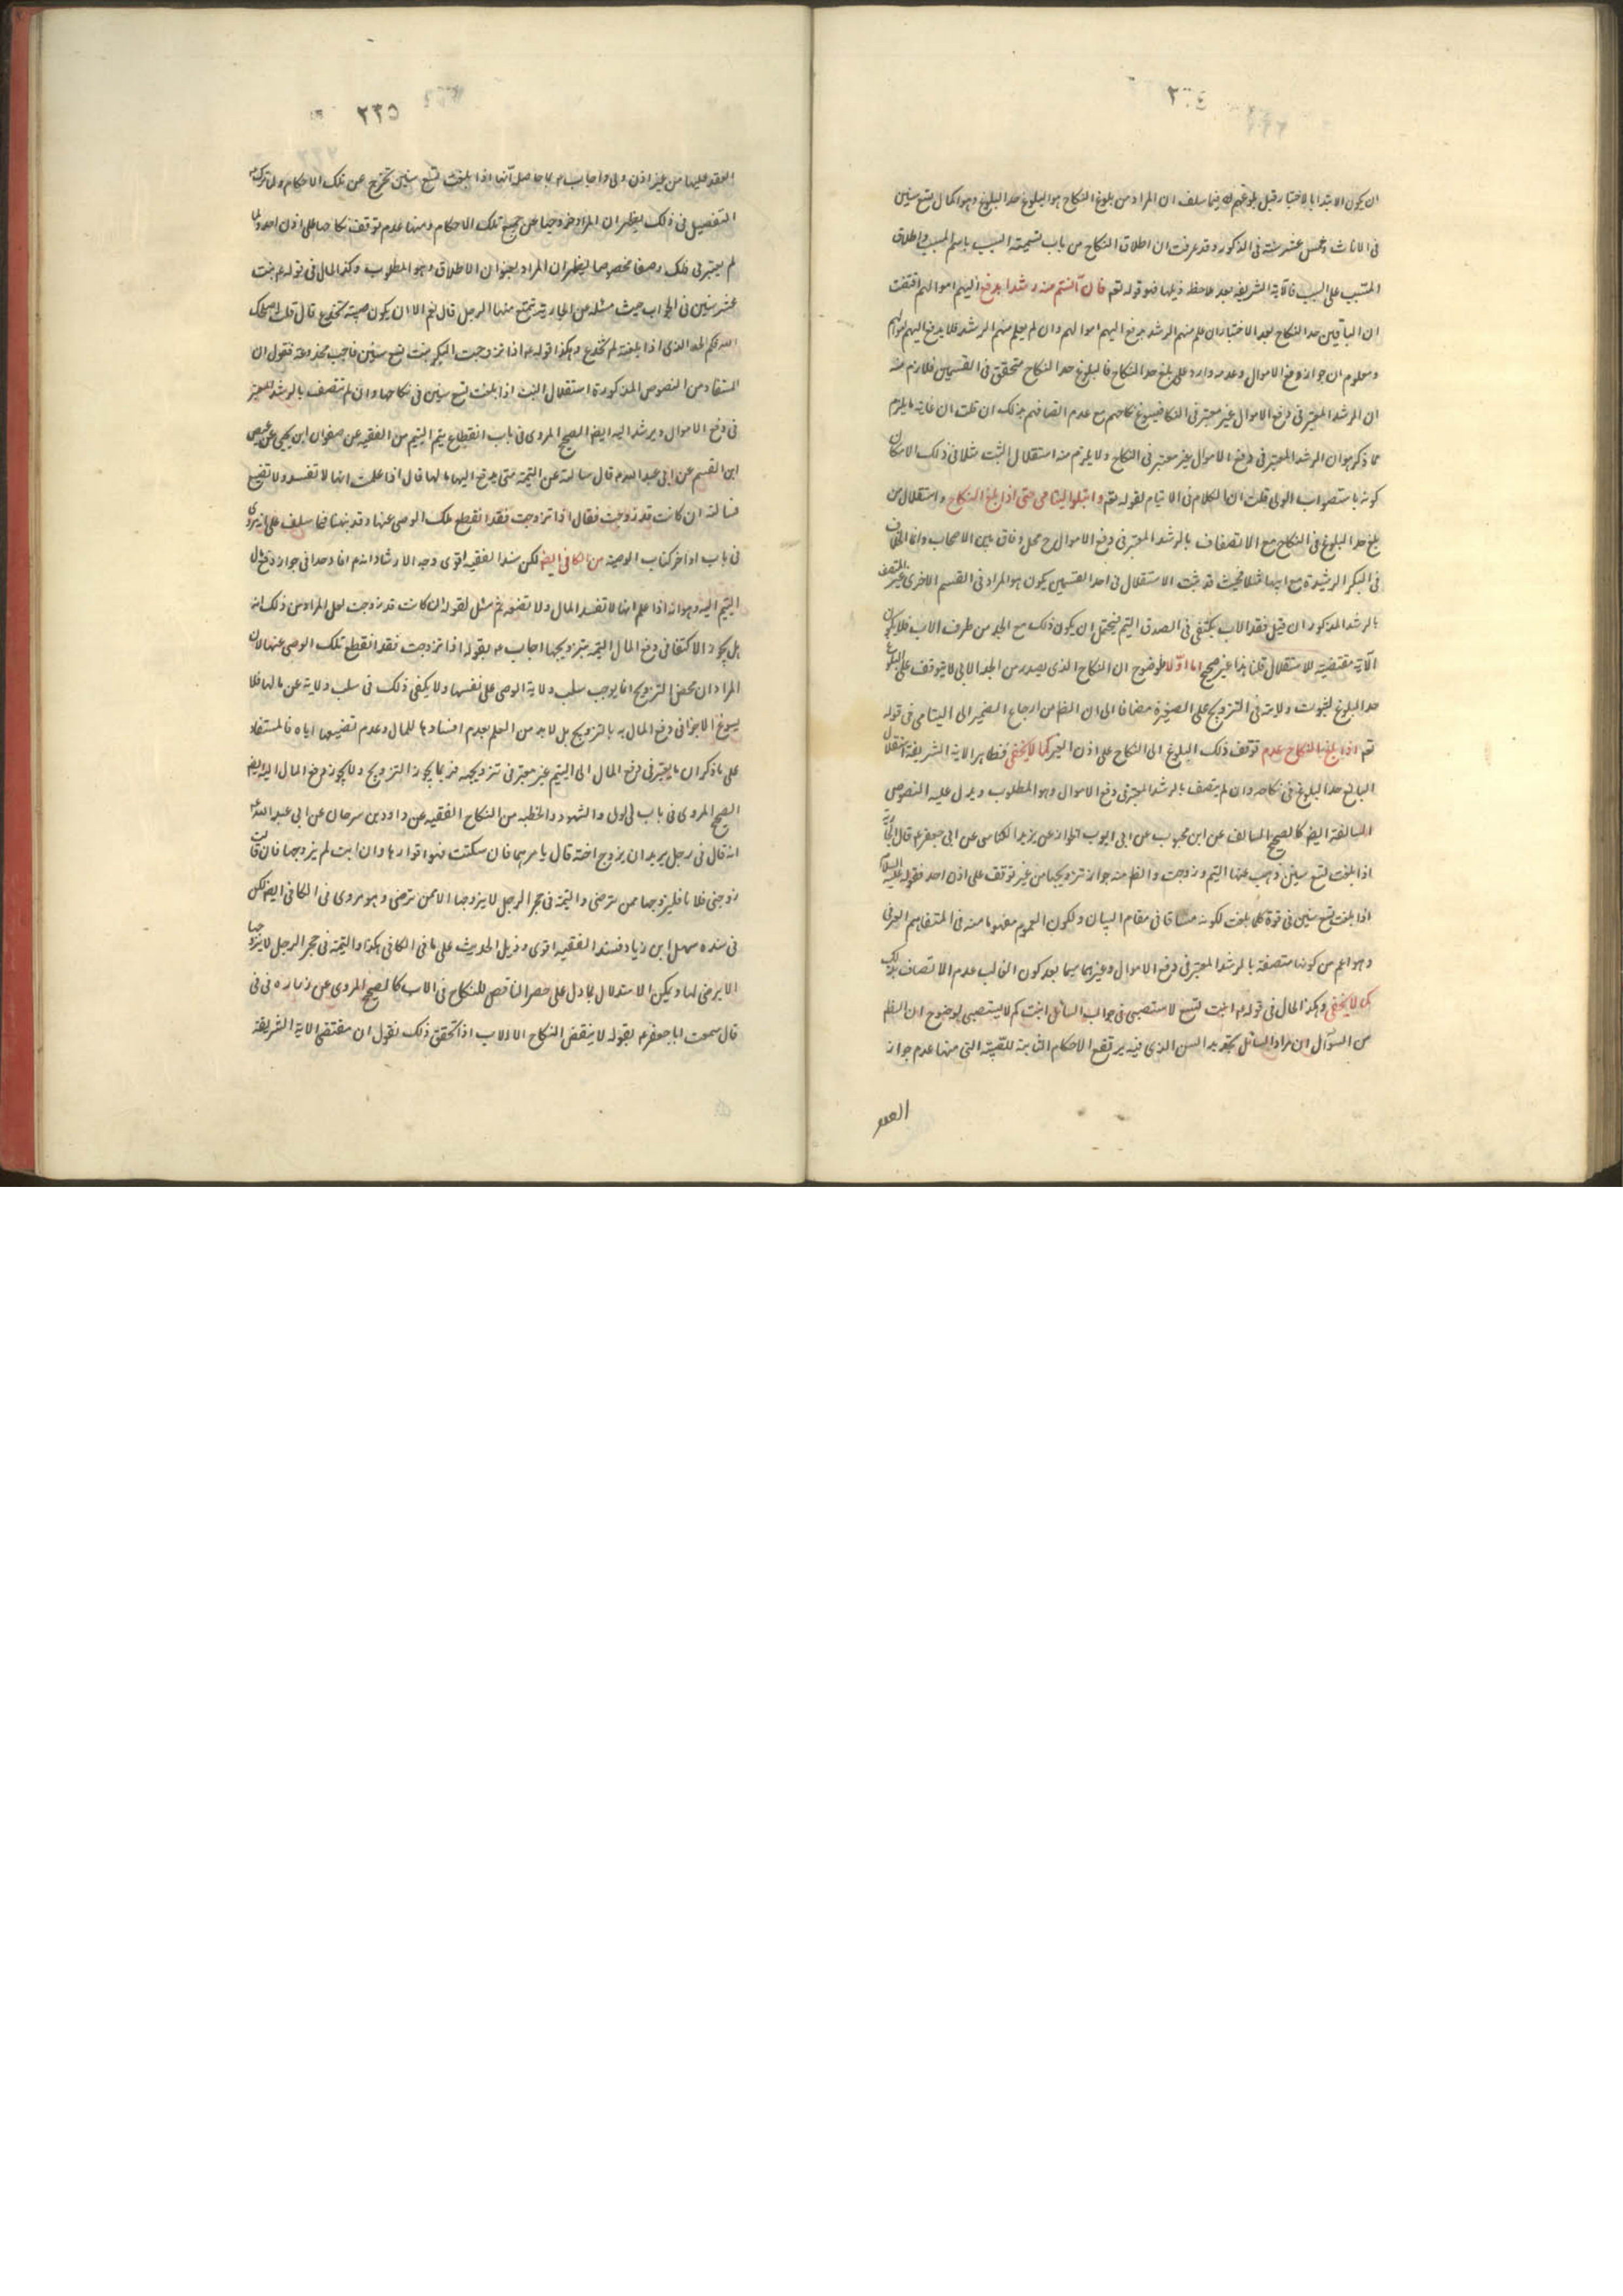 ٢٠٤
ان يكون الابتدا بالاختبار قبل بلوغهم فيما سلف ان المراد من بلوغ النكاح هو البلوغ حد البلوغ وهو اكمال تسع سنين
فى الاناث وخمس عشر سنة فى الذكور وقد عرفت ان اطلاق النكاح من باب تسمية السبب باسم المسبب واطلاق
المسبب على السبب فالآية الشريفة بعد ملاحظة ذيلها هو قوله تعم فان آنستم منه رشدا يدفع اليهم اموالهم اقتضت
ان البالغين حد النكاح بعد الاختبار ان علم منهم الرشد يدفع اليهم اموالهم وان لم يعلم منهم الرشد فلا يدفع اليهم اموالهم
ومعلوم ان جواز دفع الاموال وعدمه وارد على بلغ حد النكاح فالبلوغ حد النكاح متحقق فى القسمين فلازم منه
ان الرشد المعتبر فى دفع الاموال غير معتبر فى النكاح فيسوغ نكاحهم مع عدم اتصافهم بذلك ان قلت ان غاية ما يلزم
مما ذكر هو ان الرشد المعتبر فى دفع الاموال غير معتبر فى النكاح ولا يلزم منه استقلال البنت مثلا فى ذلك لامكان
كونه باستصواب الولى قلت ان الكلام فى الايتام لقوله تعم وابتلوا اليتامى حتى اذا بلغ النكاح واستقلال من
بلغ حد البلوغ فى النكاح مع الاتصاف بالرشد المعتبر فى دفع الاموال ح محل وفاق بين الاصحاب وانما الخلاف
فى البكر الرشيدة مع ابيها مثلا فحيث قد ثبت الاستقلال فى احد القسمين يكون هو المراد فى القسم الاخرى غير المتصف
بالرشد المذكور ان قيل فقد الاب يكتفى فى الصدق اليتم فيحتمل ان يكون ذلك مع الجد من طرف الاب فلا يكون
الآية مقتضية للاستقلال قلنا هذا غير صحيح اما اولا فلوضوح ان النكاح الذى يصدر من الجد الابى لا يتوقف على البلوغ
حد البلوغ لثبوت ولايته فى التزويج على الصغيرة مضافا الى ان الظ من ارجاع الضمير الى اليتامى فى قوله
تعم اذا بلغوا النكاح عدم توقف ذلك البلوغ الى النكاح على اذن الغير كما لا يخفى فظاهر الآية الشريفة استقلال
البالغ حد البلوغ فى نكاحه وان لم يتصف بالرشد المعتبر فى دفع الاموال وهو المطلوب ويدل عليه النصوص
السالفة ايضا كالصحيح السالف عن ابن محبوب عن ابى ايوب الخزاز عن يزيد الكناسى عن ابى جعفر ع قال الجارية
اذا بلغت تسع سنين ذهب عنها اليتم وزوجت والظ منه جواز تزويجها من غير توقف على اذن احد فقوله عليه السلام
اذا بلغت تسع سنين فى قوة كلما بلغت لكونه مساقا فى مقام البيان ولكون العموم مفهوما منه فى المتفاهم العرفى
وهو اعم من كونها متصفة بالرشد المعتبر فى دفع الاموال وغيرها سيما بعد كون الغالب عدم الاتصاف بذلك
كما لا يخفى وهكذا الحال فى قوله ع ابنت تسع لا تستصبى فى جواب السائل ابنت كم لا تستصبى لوضوح ان الظ
من السؤال ان مراد السائل تحديد السن الذى فيه يرتفع الاحكام الثابتة للصبية التى منها عدم جواز
العقد
٢٣٥
العقد عليها من غير اذن ولى واجاب ع بما حاصله انها اذا بلغت تسع سنين تخرج عن تلك الاحكام ولو ترك
التفصيل فى ذلك يظهر ان المراد خروجها عن جميع تلك الاحكام ومنها عدم توقف نكاحها على اذن احد ولما
لم يعتبر فى ذلك وصفا مخصوصا فيظهر ان المراد بعنوان الاطلاق وهو المطلوب وكذا الحال فى قوله ع بنت
عشر سنين فى الجواب حيث سئله عن الجارية تتمتع منها الرجل قال نعم الا ان يكون صبية تخدع قال قلت اصلحك
الله فكم الحد الذى اذا بلغته لم تخدع وهكذا قوله ع اذا تزوجت البكر بنت تسع سنين فليست مخدوعة فنقول ان
المستفاد من النصوص المذكورة استقلال البنت اذا بلغت تسع سنين فى نكاحها وان لم تتصف بالرشد المعتبر
فى دفع الاموال ويرشد اليه ايضا الصحيح المروى فى باب انقطاع يتم اليتيم من الفقيه عن صفوان ابن يحيى عن عيص
ابن القسم عن ابى عبد الله ع قال سالته عن اليتيمة متى يدفع اليها مالها قال اذا علمت انها لا تفسد ولا تضيع
فسالته ان كانت قد زوجت فقال اذا تزوجت فقد انقطع ملك الوصى عنها وقد نبهنا فيما سلف على انه مروى
فى باب اواخر كتاب الوصية من الكافى ايضا لكن سند الفقيه اقوى وجه الارشاد انه ع افاد حدا فى جواز دفع مال
اليتيم اليه وهو انه اذا علم انها لا تفسد المال ولا تضيعه ثم سئل بقوله ان كانت قد زوجت لعل المراد من ذلك انه
هل يجوز الاكتفا فى دفع المال اليتيمة بتزويجها اجاب ع بقوله اذا تزوجت فقد انقطع تلك الوصى عنها لان
المراد ان محض التزويج انما يوجب سلب ولاية الوصى على نفسها ولا يكفى ذلك فى سلب ولايته عن مالها فلا
يسوغ الاجتزا فى دفع المال به بالتزويج بل لا بد من العلم بعدم افسادها للمال وعدم تضييعها اياه فالمستفاد
على ما ذكر ان ما يعتبر فى دفع المال الى اليتيم غير معتبر فى تزويجه فربما يجوز التزويج ولا يجوز دفع المال اليه ايضا
الصحيح المروى فى باب الولى والشهود والخطبة من النكاح الفقيه عن داود بن سرحان عن ابى عبد الله ع
انه قال فى رجل يريد ان يزوج اخته قال يامرها فان سكتت فهو اقرارها وان ابت لم يزوجها فان قالت
زوجنى فلانا فليزوجها ممن ترضى واليتيمة فى حجر الرجل لا يزوجها الا ممن ترضى وهو مروى فى الكافى ايضا لكن
فى سنده سهل ابن زياد فسند الفقيه اقوى وذيل الحديث على ما فى الكافى هكذا واليتيمة فى حجر الرجل لا يزوجها
الا برضى لها ويمكن الاستدلال بما دل على حصر الناقص للنكاح فى الاب كالصحيح المروى عن زراره فى
قال سمعت ابا جعفر ع يقول لا ينقض النكاح الا الاب اذا تحقق ذلك نقول ان مقتضى الآية الشريفة